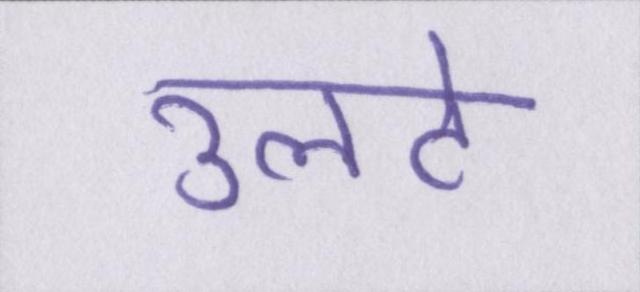 उलटे